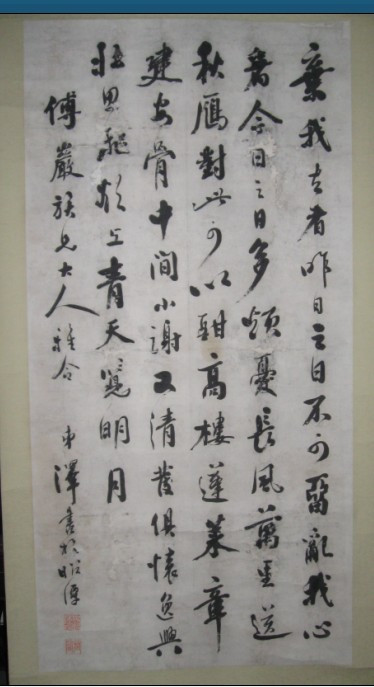 棄我去者昨日之日不可留亂我心
者今日之日多煩憂長風萬里送
秋鴈對此可以酣高樓蓬萊章
建安骨中間小謝又清發俱懷逸興
壯思飛欲上青天覽明月
傅巖族兄大人雅 弟澤書於昭潭